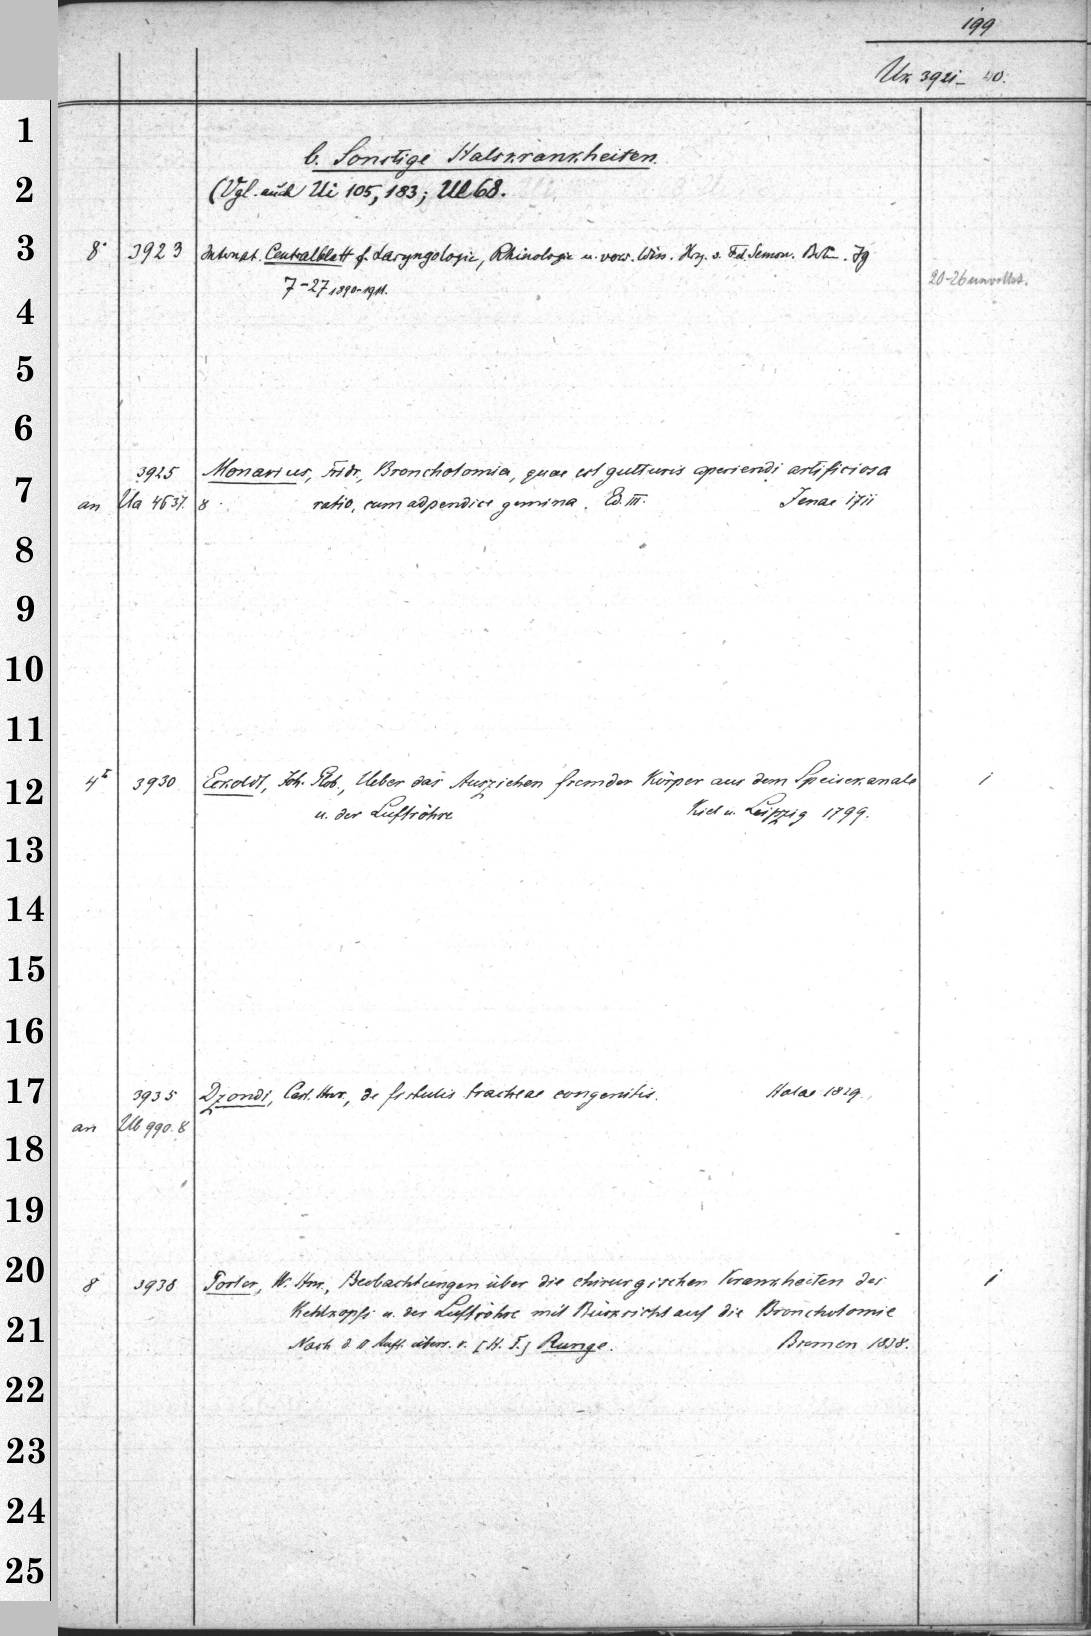 199
Ux 3921-40.
b. Sonstige Halskrankheiten.
(Vgl. auch Ui 105, 183; Ul 68.
8° 3923 Internat. Centralblatt f. Laryngologie, Rhinologie u. verw. Wiss. Hrg. v. Fel. Semon. Berlin. Jg
7-27 1890-1911.
20-26 unvollst.
3925 Monavius, Fridr., Bronchotomia, quae est gutturis aperiendi artificiosa
an Ua 4637. 8. ratio, cum adpendice gemina. Ed. III. Jenae 1711
4° 3930 Eckoldt, Joh. Glob., Ueber das Ausziehen fremder Körper aus dem Speisekanale 1
u. der Luftröhre Kiel u. Leipzig 1799.
3935 Dzondi, Carl. Hnr., de fistulis tracheae congenitis. Halae 1829.
an Ub 990. 8
8 3938 Porter, W. Hnr., Beobachtungen über die chirurgischen Krankheiten des 1
Kehlkopfs u. der Luftröhre mit Rücksicht auf die Bronchotomie
Nach d. II Aufl. übers. v. [H. F.] Runge. Bremen 1838.
1
2
3
4
5
6
7
8
9
10
11
12
13
14
15
16
17
18
19
20
21
22
23
24
25